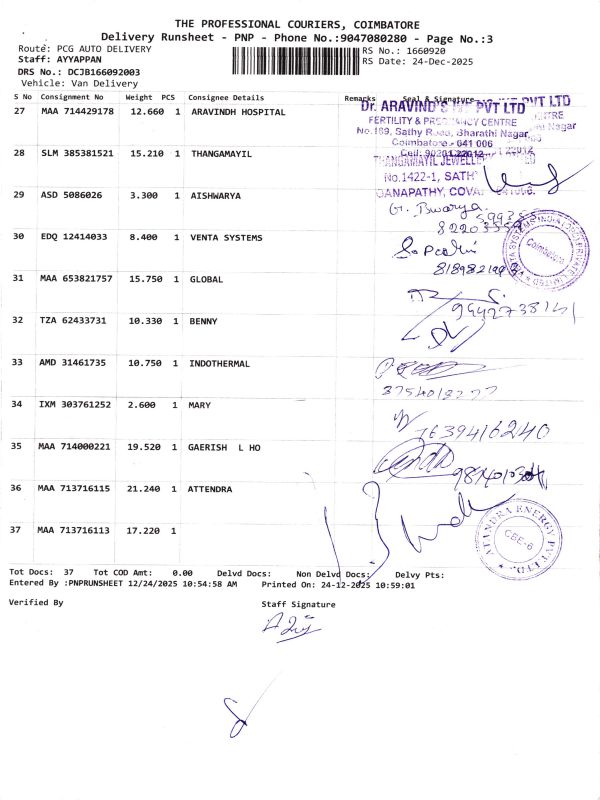 THE PROFESSIONAL COURIERS, COIMBATORE
Delivery Runsheet - PNP - Phone No.:9047080280 - Page No.:3
Route: PCG AUTO DELIVERY
RS No.: 1660920
Staff: AYYAPPAN
RS Date: 24-Dec-2025
DRS No.: DCJB166092003
Vehicle: Van Delivery
S No Consignment No Weight PCS Consignee Details Remarks Seal & Signature
27 MAA 714429178 12.660 1 ARAVINDH HOSPITAL
Dr. ARAVIND'S PVT LTD
FERTILITY & CENTRE
No.189, Sathy Road, Bharathi Nagar
Coimbatore - 641 006
28 SLM 385381521 15.210 1 THANGAMAYIL
THANGAMAYIL JEWELLERY
No.1422-1, SATHY
GANAPATHY,
29 ASD 5086026 3.300 1 AISHWARYA
30 EDQ 12414033 8.400 1 VENTA SYSTEMS
Coimbatore
31 MAA 653821757 15.750 1 GLOBAL
32 TZA 62433731 10.330 1 BENNY
33 AMD 31461735 10.750 1 INDOTHERMAL
34 IXM 303761252 2.600 1 MARY
7639416240
35 MAA 714000221 19.520 1 GAERISH L HO
36 MAA 713716115 21.240 1 ATTENDRA
ATANDRA ENERGY PVT LTD
CBE-6
37 MAA 713716113 17.220 1
Tot Docs: 37 Tot COD Amt: 0.00 Delvd Docs: Non Delvd Docs: Delvy Pts:
Entered By :PNPRUNSHEET 12/24/2025 10:54:58 AM Printed On: 24-12-2025 10:59:01
Verified By Staff Signature